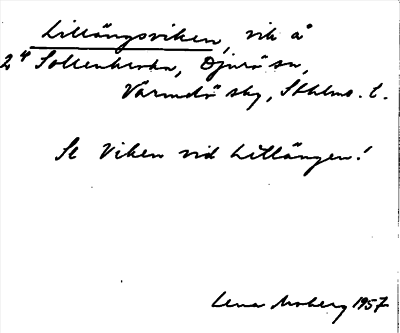 Lillängsviken, vik å
2⁴ Sollenkroka, Djurö sn,
Värmdö skg, Sthlms. l.
Se Viken vid Lillängen!
Lena Moberg 1957